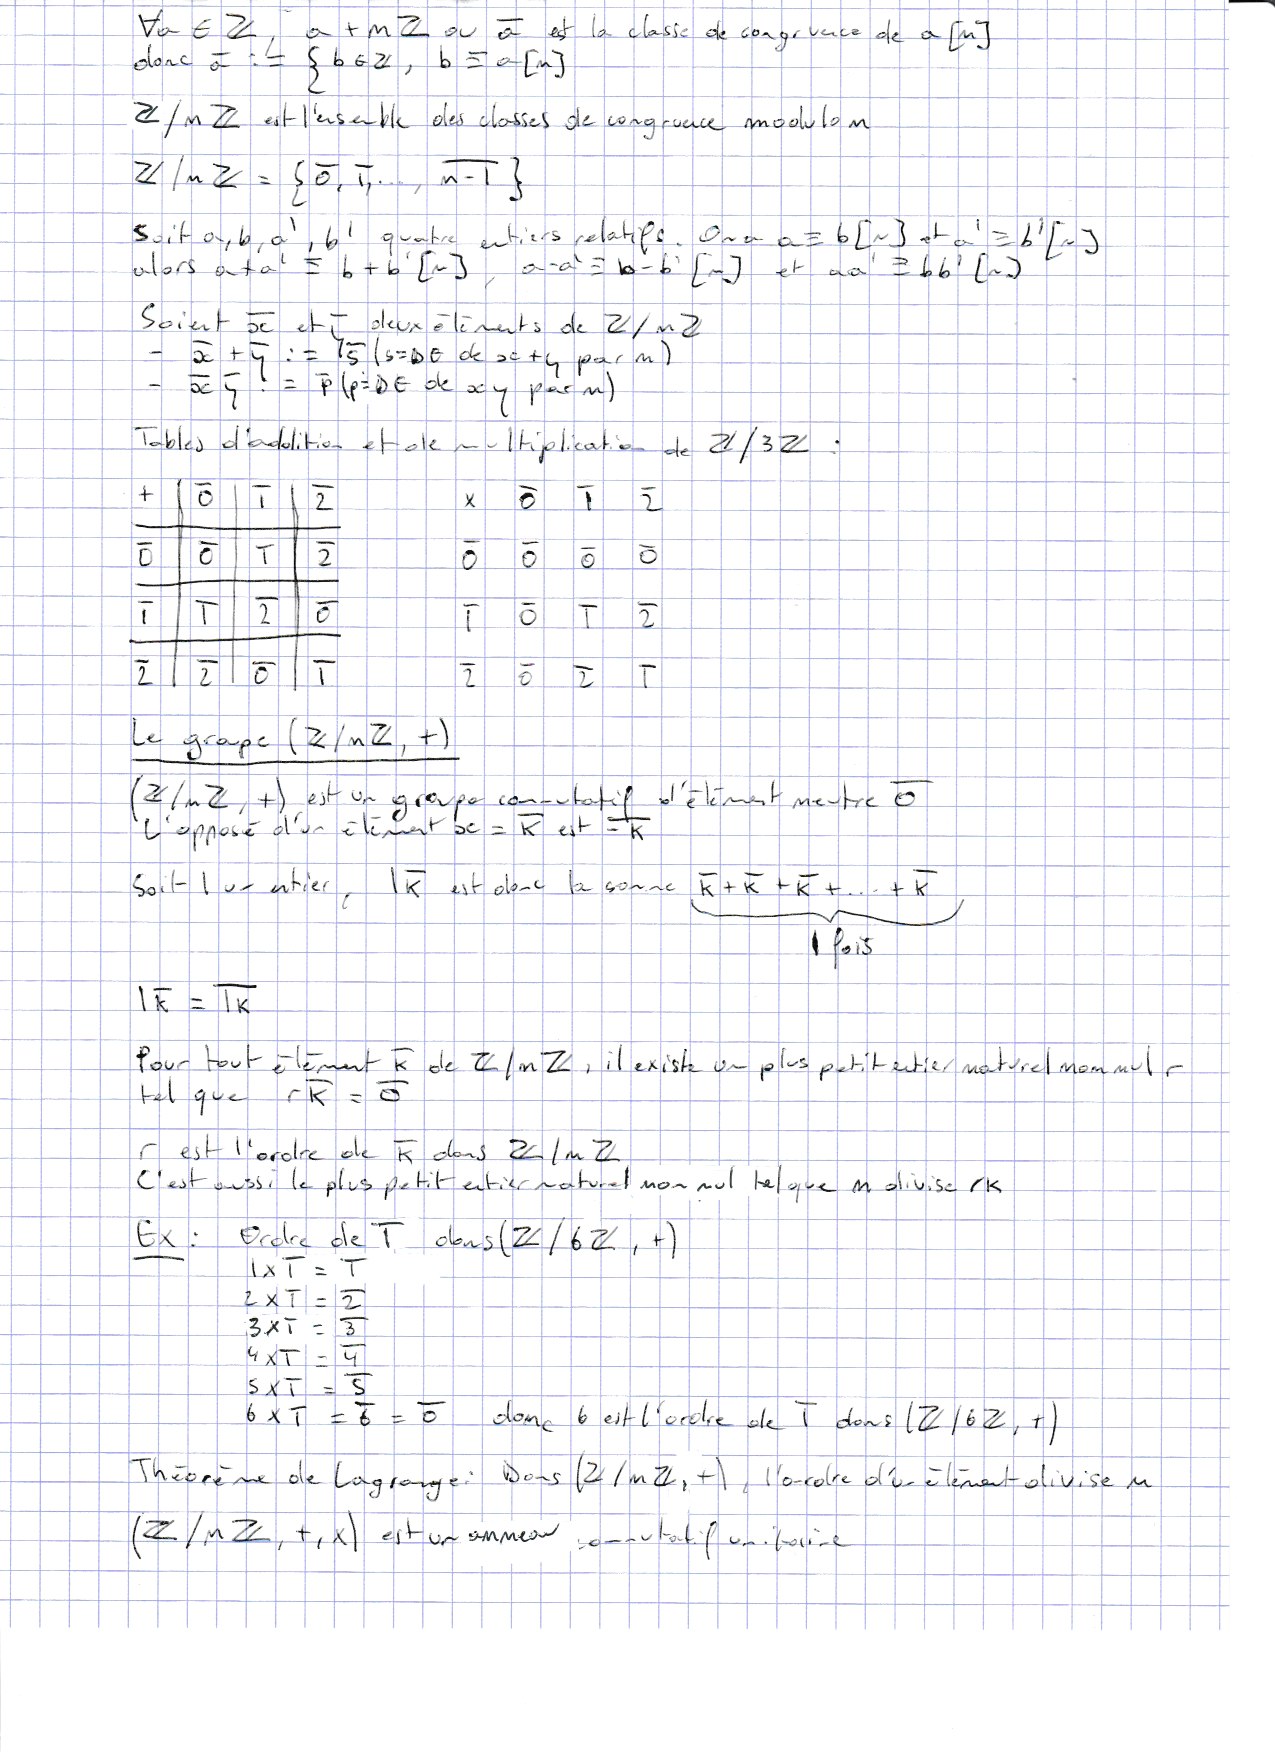 ∀a ∈ ℤ, a + nℤ ou a̅ est la classe de congruence de a [n]
donc a̅ := { b ∈ ℤ, b ≡ a [n]
ℤ/nℤ est l'ensemble des classes de congruence modulo n
ℤ/nℤ = { 0̅, 1̅, ..., n-1̅ }
Soit a, b, a', b' quatre entiers relatifs. On a a ≡ b [n] et a' ≡ b' [n]
alors a + a' ≡ b + b' [n], a - a' ≡ b - b' [n] et aa' ≡ bb' [n]
Soient x̅ et y̅ deux éléments de ℤ/nℤ
- x̅ + y̅ := s̅ (s = DE de x + y par n)
- x̅ y̅ := p̅ (p = DE de xy par n)
Tables d'addition et de multiplication de ℤ/3ℤ :
+ 0̅ 1̅ 2̅ x 0̅ 1̅ 2̅
0̅ 0̅ 1̅ 2̅ 0̅ 0̅ 0̅ 0̅
1̅ 1̅ 2̅ 0̅ 1̅ 0̅ 1̅ 2̅
2̅ 2̅ 0̅ 1̅ 2̅ 0̅ 2̅ 1̅
Le groupe (ℤ/nℤ, +)
(ℤ/nℤ, +) est un groupe commutatif d'élément neutre 0̅
L'opposé d'un élément x = k̅ est -k̅
Soit l un entier, l k̅ est donc la somme k̅ + k̅ + k̅ + ... + k̅
l fois
l k̅ = l̅k̅
Pour tout élément k̅ de ℤ/nℤ, il existe un plus petit entier naturel non nul r
tel que r k̅ = 0̅
r est l'ordre de k̅ dans ℤ/nℤ
C'est aussi le plus petit entier naturel non nul tel que n divise rk
Ex : Ordre de 1̅ dans (ℤ/6ℤ, +)
1 x 1̅ = 1̅
2 x 1̅ = 2̅
3 x 1̅ = 3̅
4 x 1̅ = 4̅
5 x 1̅ = 5̅
6 x 1̅ = 6̅ = 0̅ donc 6 est l'ordre de 1̅ dans (ℤ/6ℤ, +)
Théorème de Lagrange : Dans (ℤ/nℤ, +), l'ordre d'un élément divise n
(ℤ/nℤ, +, x) est un anneau commutatif unitaire